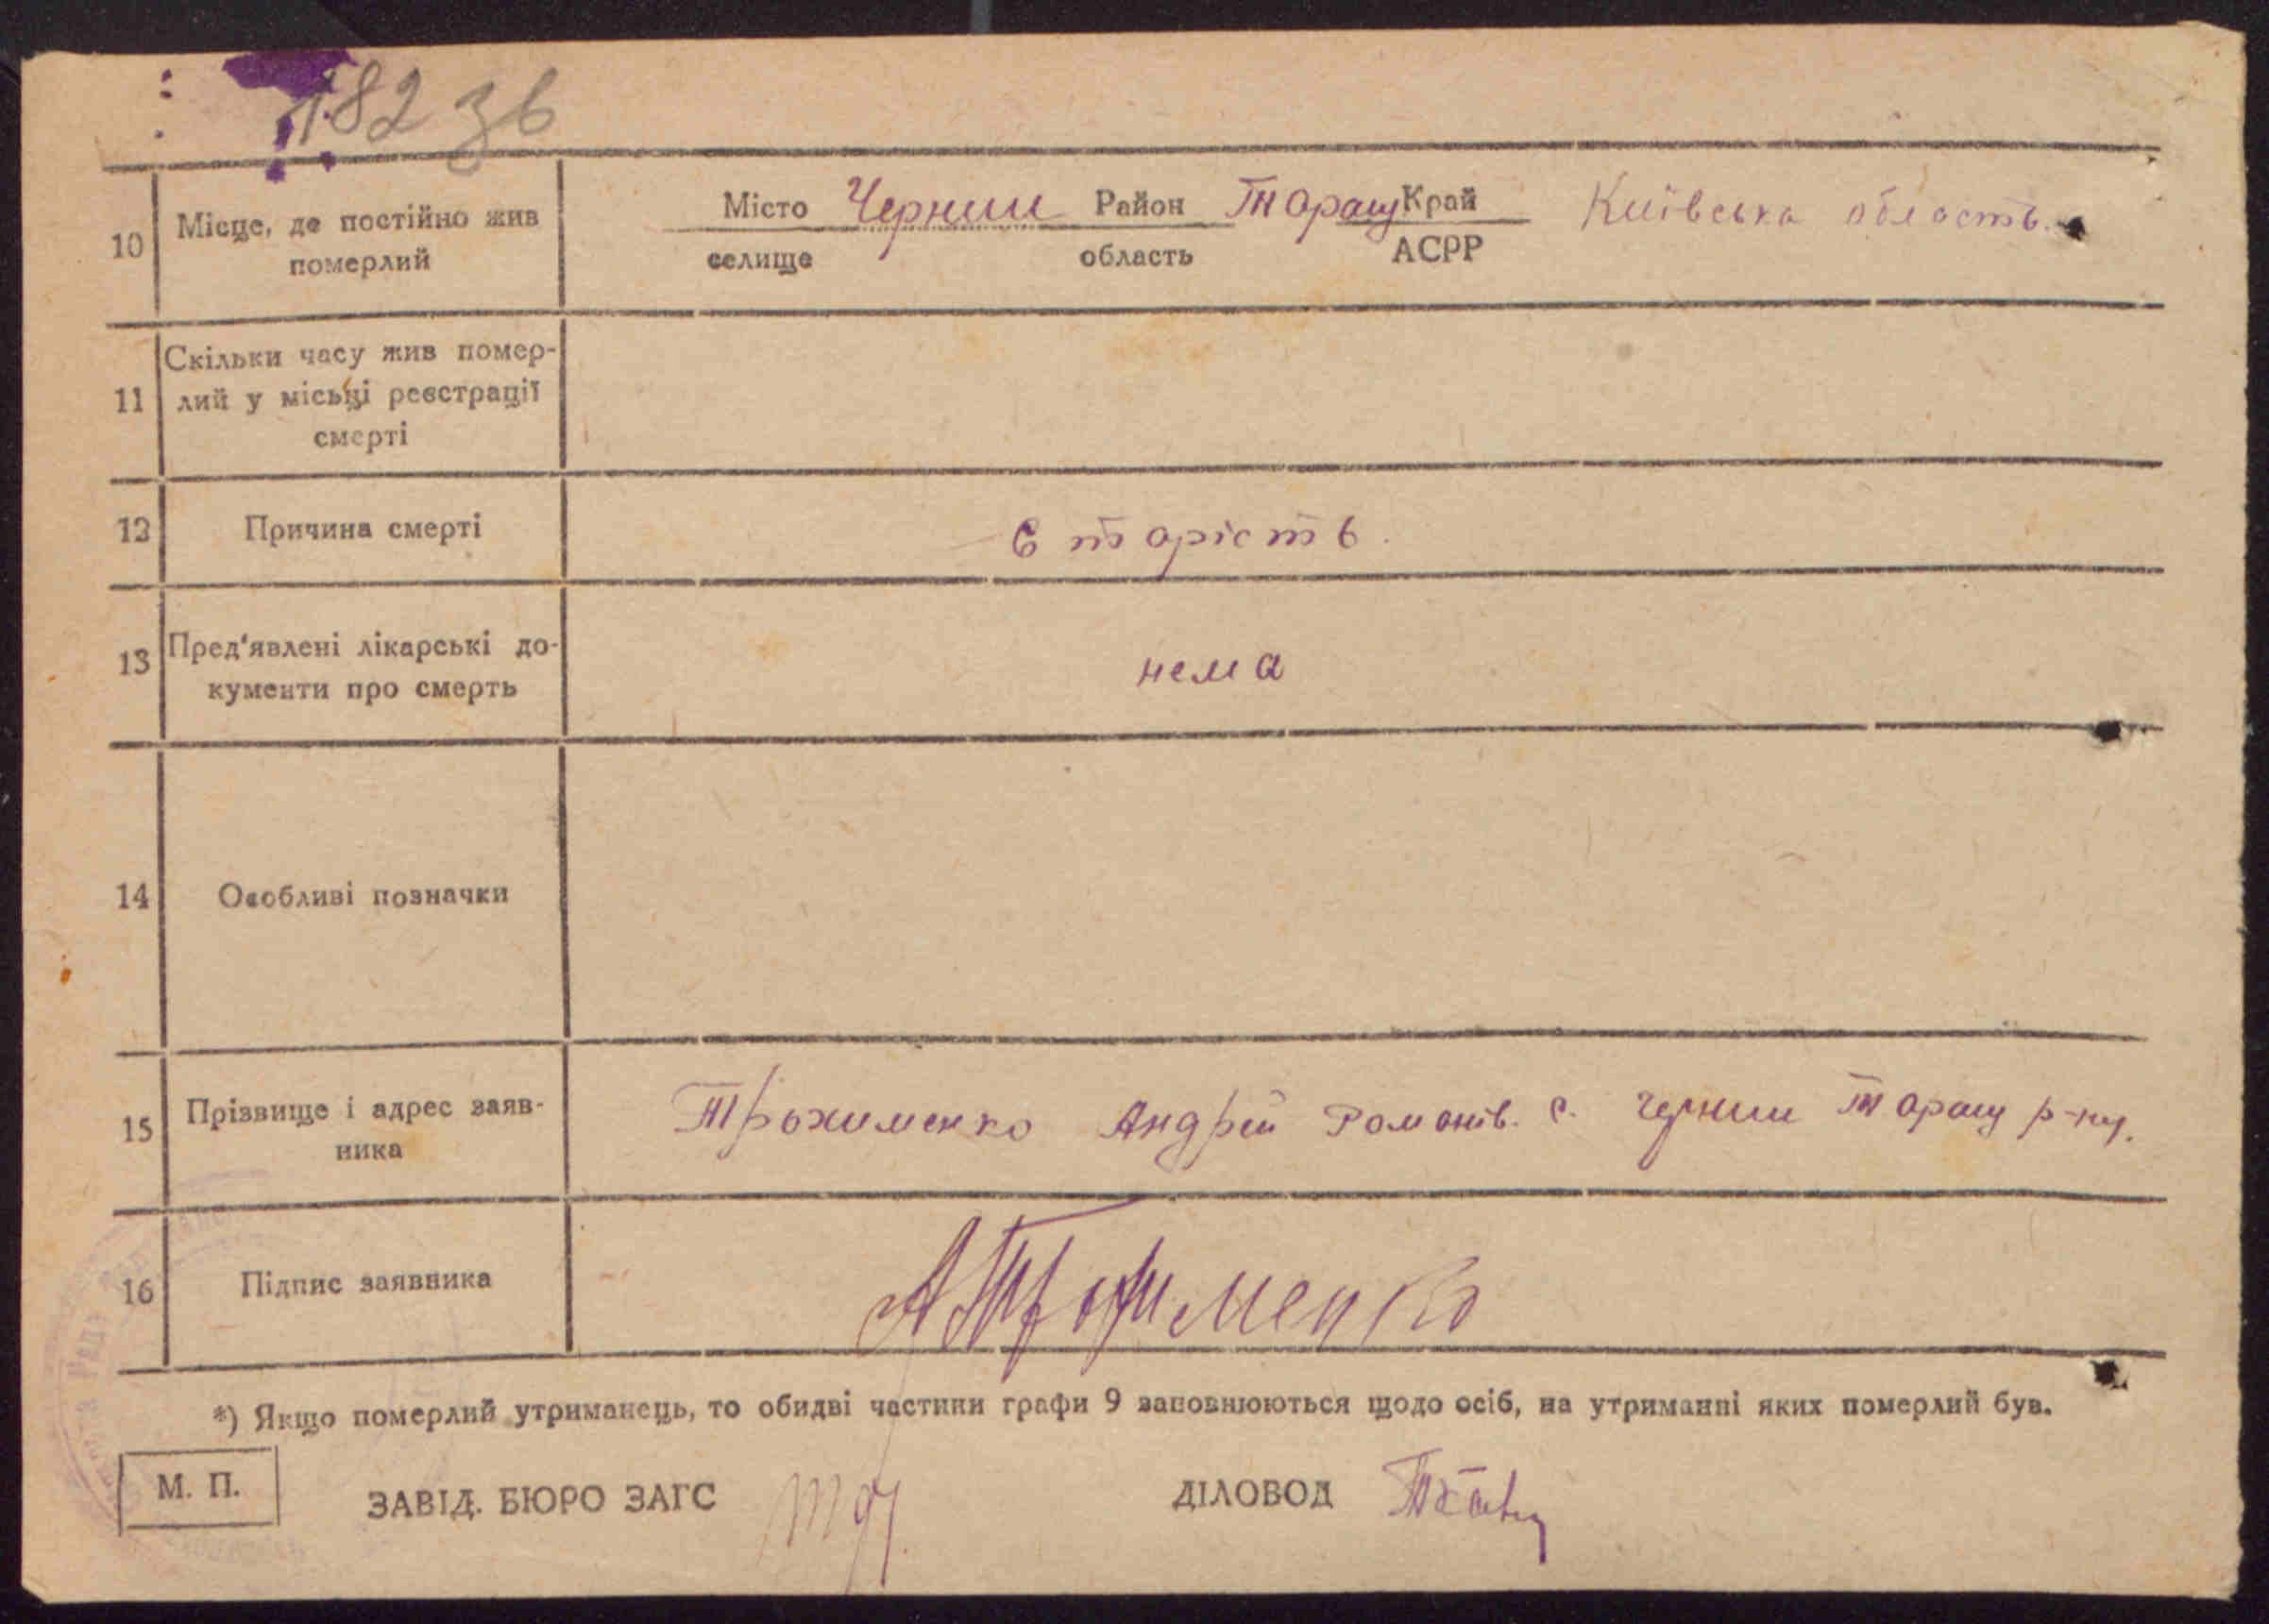 182 зв
10 Місце, де постійно жив померлий
Місто Чернин Район Таращ Край Київська область.
селище область АСРР
11 Скільки часу жив помер-
лий у місьці реєстрації
смерті
12 Причина смерті старість.
13 Пред'явлені лікарські до-
кументи про смерть нема
14 Особливі позначки
15 Прізвище і адрес заяв-
ника Трохименко Андрій Романів. с. Чернин Таращ р-ну.
16 Підпис заявника А Трофименко
*) Якщо померлий утриманець, то обидві частини графи 9 заповнюються щодо осіб, на утриманні яких померлий був.
М. П. ЗАВІД. БЮРО ЗАГС ДІЛОВОД